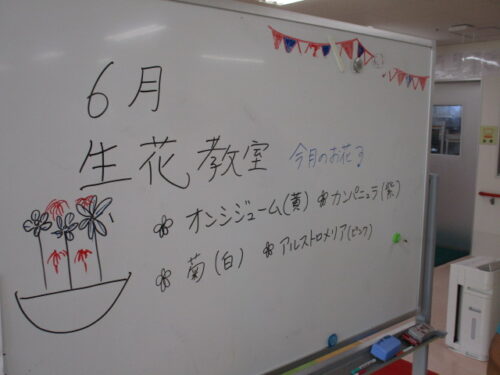 6月
生花教室 今月のお花
オンシジューム(黄) カンパニュラ(紫)
菊(白) アルストロメリア(ピンク)